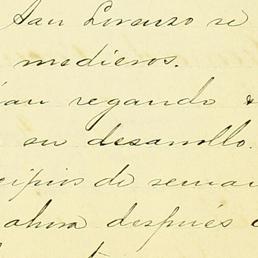 San Lorenzo se
medieros.
ían regando
su desarrollo.
cipios de seman
ahora después